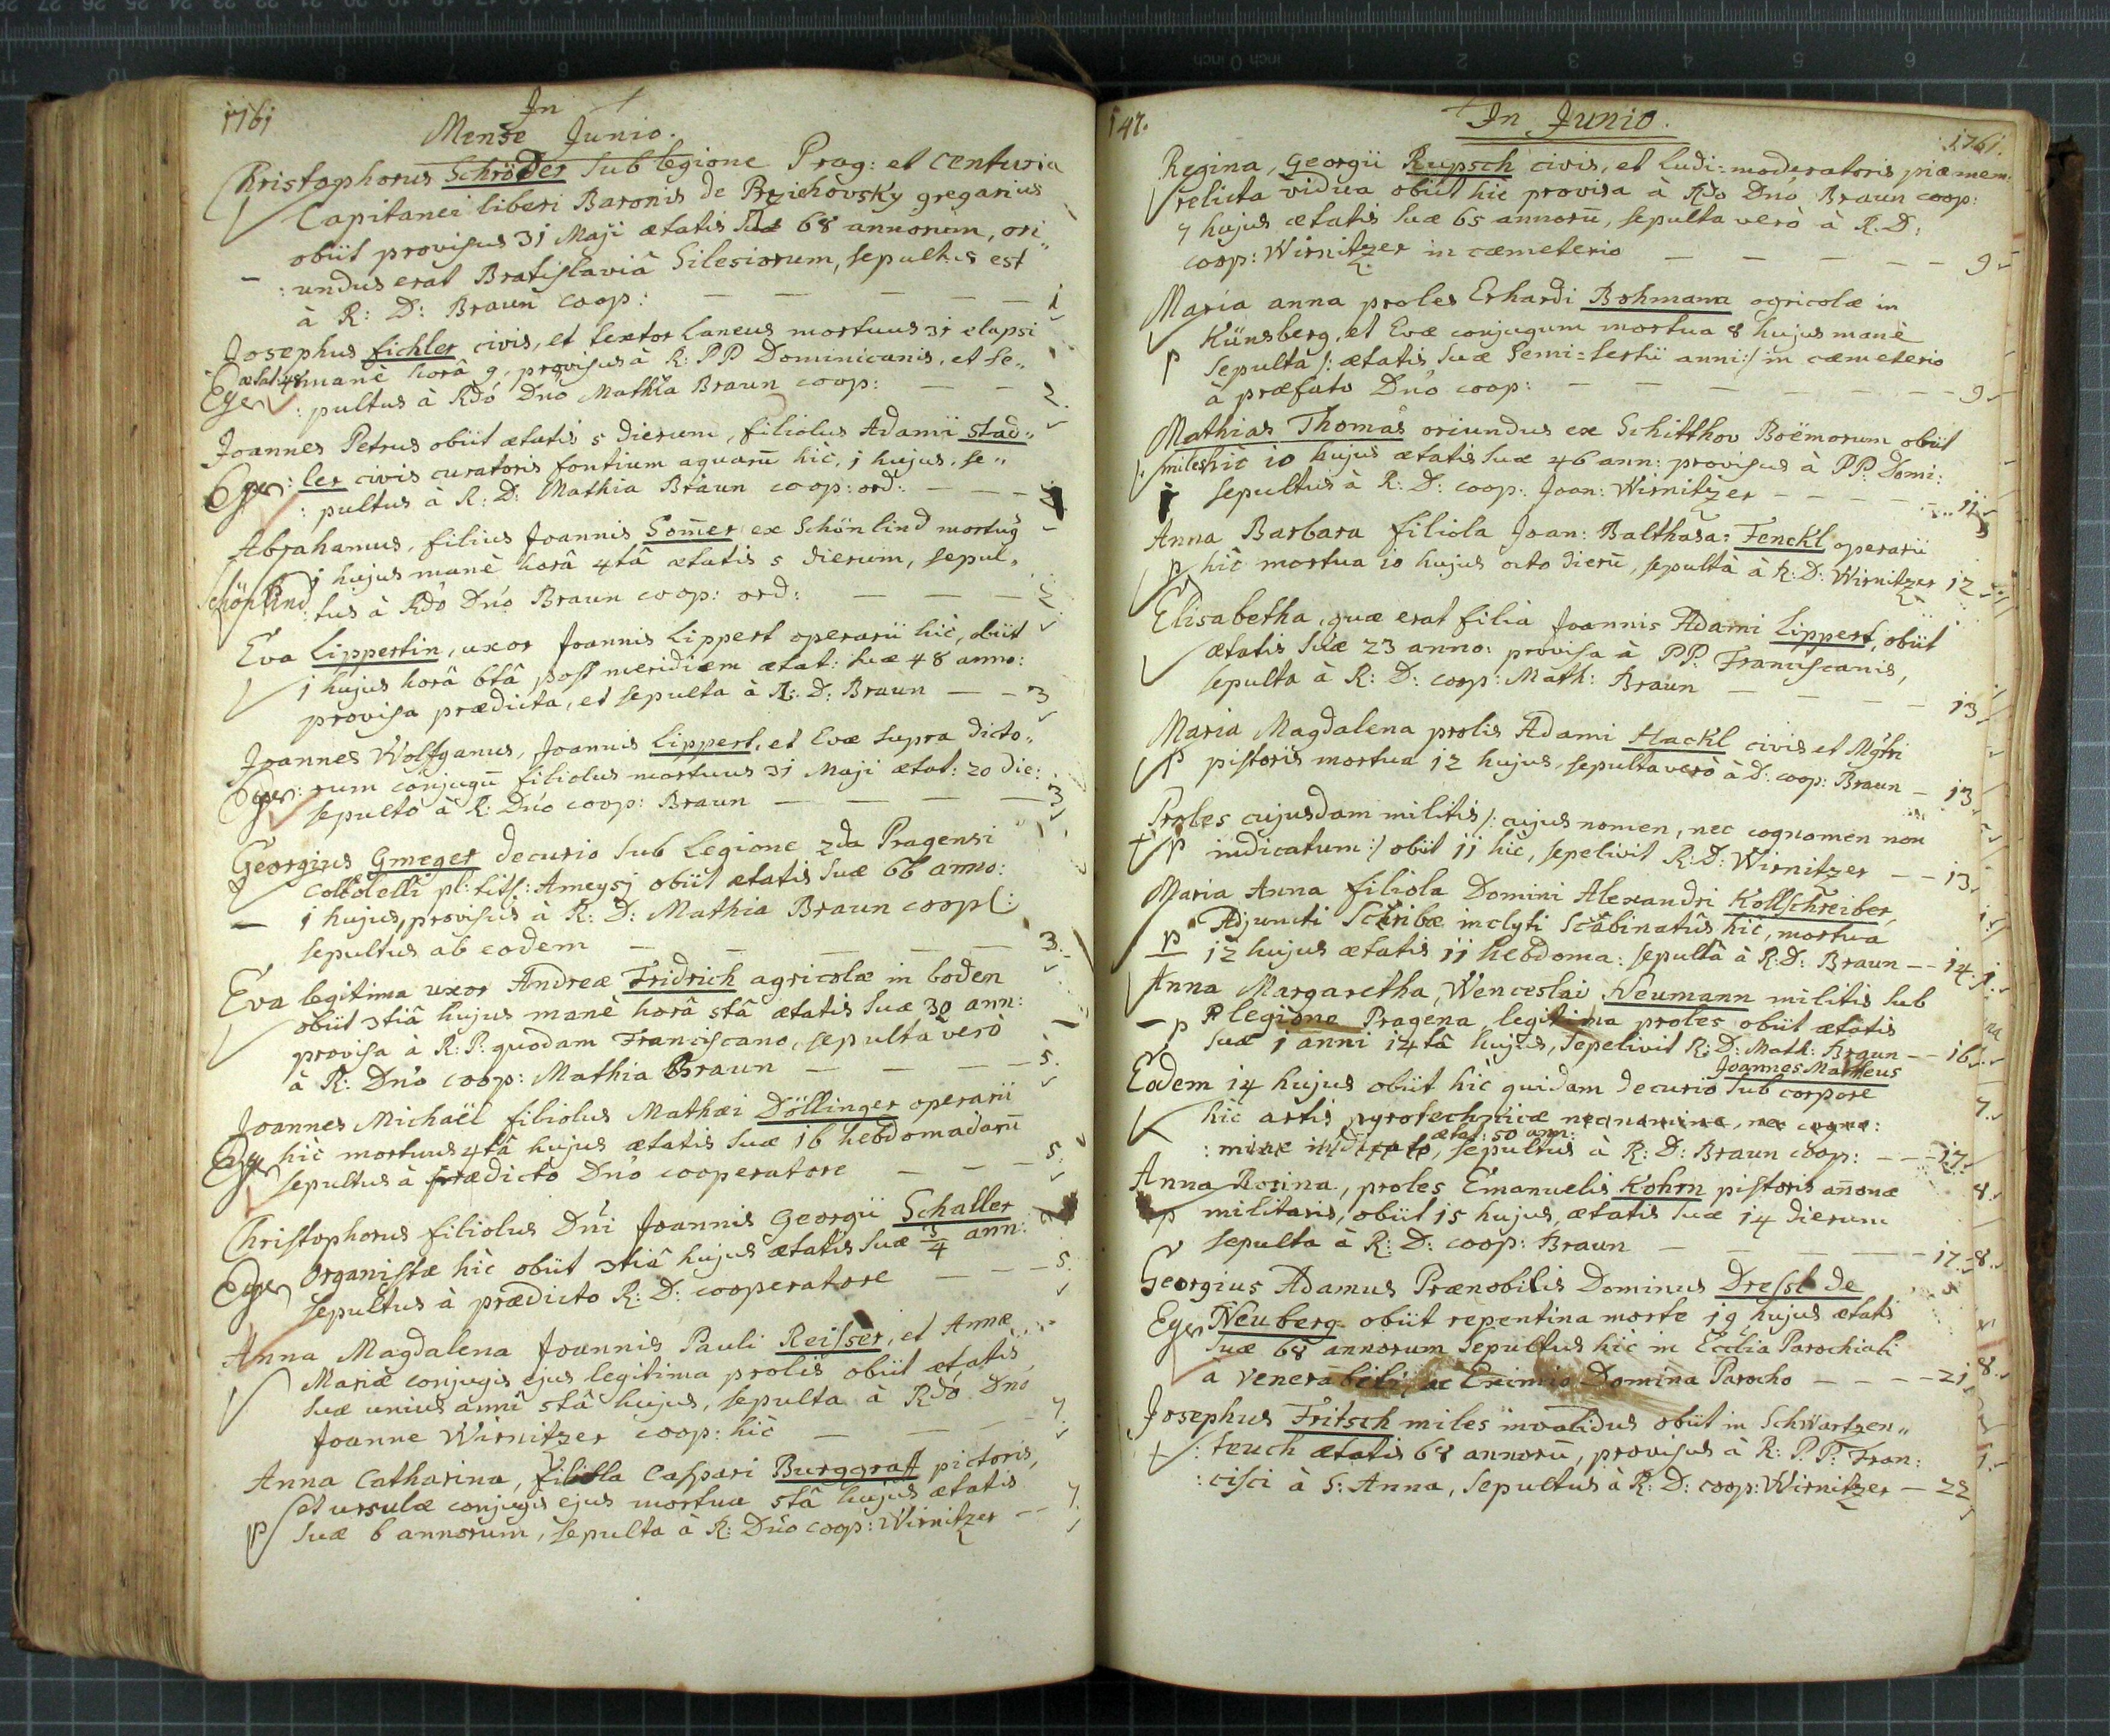 1761
In
Mense Junio.
Christophorus Schröder sub legione Prag: et centuria
Capitanei liberi Baronis de Przichovsky gregarius
obiit provisus 31 Maji ætatis suæ 68 annorum, ori„
:undus erat Bratislaviâ Silesiorum, sepultus est
à R: D: Braun coop: — — — — — 1
Josephus Eichler civis, et textor laneus mortuus 31 elapsi
ætat: 48 manè horâ 9. provisus à R: PP Dominicanis, et se„
Eger :pultus à Rdo Dno Mathia Braun coop: — — 2.
Joannes Petrus obiit ætatis 5 dierum, filiolus Adami Stad„
Eger :ler civis curatoris fontium aquarū hic, 1 hujus. se„
:pultus à R: D: Mathia Braun coop: ord: — — —
Abrahamus, filius Joannis Som̄er ex Schönlind mortuus
1 hujus manè horâ 4tâ ætatis 5 dierum, sepul„
Schönlind :tus à Rdo Dno Braun coop: ord: — — — 2.
Eva Lippertin, uxor Joannis Lippert operarii hic, obiit
1 hujus horâ 6tâ post meridiem ætat: suæ 48 anno:
provisa prædicta, et sepulta à R: D: Braun — — 3
Joannes Wolfganus, Joannis Lippert, et Evæ supra dicto„
Eger :rum conjugū filiolus mortuus 31 Maji ætat: 20 die:
sepulto à R: Dno coop: Braun — — — — 3
Georgius Gmeger decurio sub Legione 2da Pragensi
Collolelli pl: tit: Ameysj obiit ætatis suæ 66 anno:
1 hujus, provisus à R: D: Mathia Braun coop:
sepultus ab eodem — — — — — 3.
Eva legitima uxor Andreæ Fridrich agricolæ in boden
obiit 3tiâ hujus manè horâ 5tâ ætatis suæ 30 ann:
provisa à R: P: quodam Franciscano, sepulta verò
à R: Dno coop: Mathia Braun — — — — 5.
Joannes Michaël filiolus Mathæi Döllinger operarii
Eger hic mortuus 4tâ hujus ætatis suæ 16 hebdomadarū
sepultus à prædicto Dno cooperatore — — — 5.
Christophorus filiolus Dni Joannis Georgii Schaller
Eger Organistæ hic obiit 3tiâ hujus ætatis suæ 3/4 ann:
sepultus à prædicto R: D: cooperatore — — — 5.
Anna Magdalena Joannis Pauli Reisser, et Annæ
Mariæ conjugis ejus legitima prolis obiit ætatis
suæ unius anni 5tâ hujus, sepulta à Rdo Dno
Joanne Wirnitzer coop: hic — — — 7.
Anna Catharina, filiola Caspari Burggraff pictoris,
et ursulæ conjugis ejus mortua 5tâ hujus ætatis
p suæ 6 annorum, sepulta à R: Dno coop: Wirnitzer — — 7.
147.
In Junio.
1761.
Regina, Georgii Rupsch civis, et ludi-moderatoris piæ mem:
relicta vidua obiit hic provisa à Rdo Dno Braun coop:
7 hujus ætatis suæ 65 annorū, sepulta verò à R. D:
coop: Wirnitzer in cæmeterio — — — — — 9
Maria anna proles Erhardi Bohmann agricolæ in
Künsberg, et Evæ conjugum mortua 8 hujus manè
p sepulta /: ætatis suæ semi=tertii anni :/ in cæmeterio
à præfato Dno coop: — — — — — — 9
Mathias Thomas oriundus ex Schitthov Boëmorum obiit
miles hic 10 hujus ætatis suæ 46 ann: provisus à PP: Domi:
sepultus à R: D: coop: Joan: Wirnitzer — — — — — 12
Anna Barbara filiola Joan: Balthasa: Fenckl operarii
p hic mortua 10 hujus octo dierū, sepulta à R: D: Wirnitzer 12
Elisabetha, quæ erat filia Joannis Adami Lippert, obiit
ætatis suæ 23 anno: provisa à PP: Franciscanis,
sepulta à R: D: coop: Math: Braun — — — — 13
Maria Magdalena prolis Adami Hackl civis et Mgtri
p pistoris mortua 12 hujus, sepulta verò à D: coop: Braun — 13
Proles cujusdam militis /: cujus nomen, nec cognomen non
+ p indicatum :/ obiit 11 hic, sepelivit R: D: Wirnitzer — — 13
Maria Anna filiola Domini Alexandri Kollschreiber,
Adjuncti Scribæ inclyti Scabinatûs hic, mortua
p 12 hujus ætatis 11 hebdoma: sepulta à R: D: Braun — — 14.
Anna Margaretha, Wenceslai Neumann militis sub
p legione Pragena, legitima proles obiit ætatis
suæ 1 anni 14tâ hujus, sepelivit R: D: Math: Braun — — 16
Joannes Matheus
Eodem 14 hujus obiit hic quidam decurio sub corpore
hic artis pyrotechnicæ nec nomine, nec cogno:
ætat: 50 ann:
:mine indicato, sepultus à R: D: Braun coop: — — 17
Anna Rosina, proles Emanuelis Kohrn pistoris an̄onæ
p militaris, obiit 15 hujus, ætatis suæ 14 dierum
sepulta à R: D: coop: Braun — — — — — 17
Georgius Adamus Prænobilis Dominus Dressl de
Eger Neuberg obiit repentina morte 19 hujus ætatis
suæ 68 annorum sepultus hic in Ecclia Parochiali
à venerabili, ac Eximio Domino Parocho — — — — 21
Josephus Fritsch miles invalidus obiit in Schwartzen„
:teuch ætatis 68 annorū, provisus à R: P: P: Fran:
:cisci à S: Anna, sepultus à R: D: coop: Wirnitzer — 22